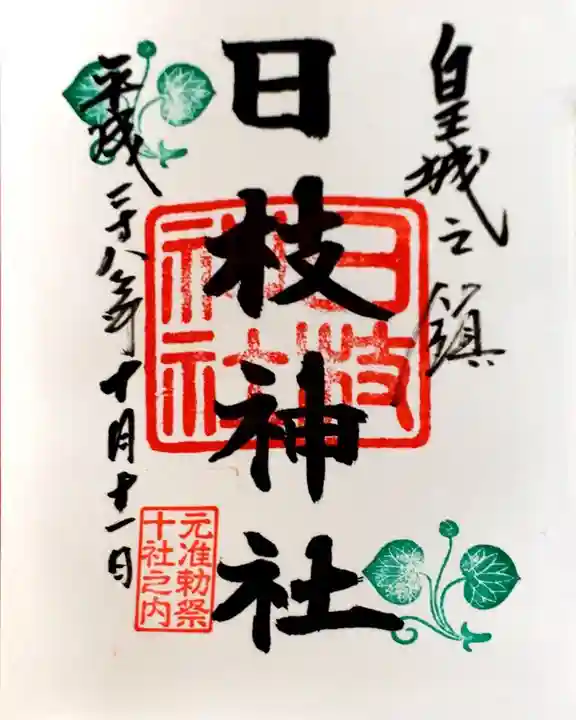 皇城之鎮
日枝神社
日枝
神社
元准勅祭
十社之内
平成二十八年十月十一日